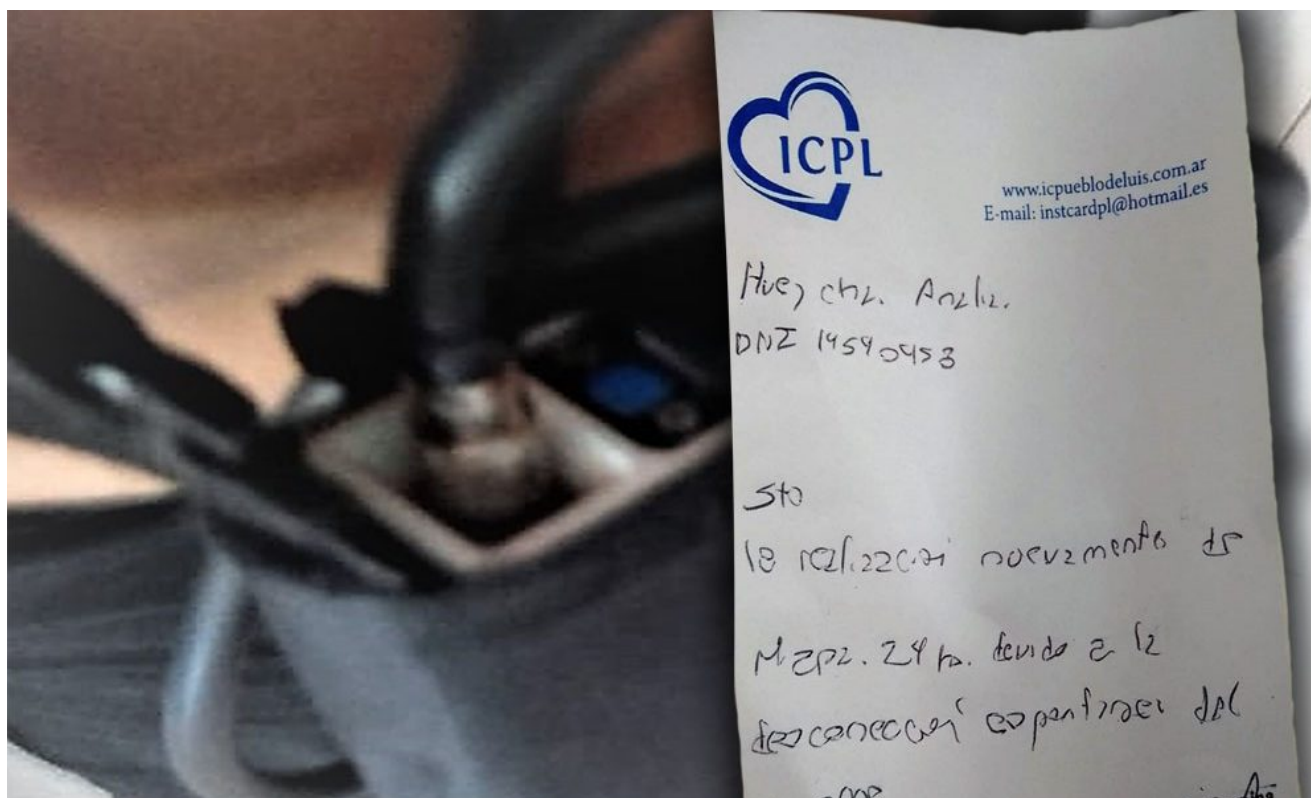 ICPL
www.icpueblodeluis.com.ar
E-mail: instcardpl@hotmail.es
DNI 14540453
Sto
la realización nuevamente de
Mapa. 24 hs. devido a la
desconección espontanea del